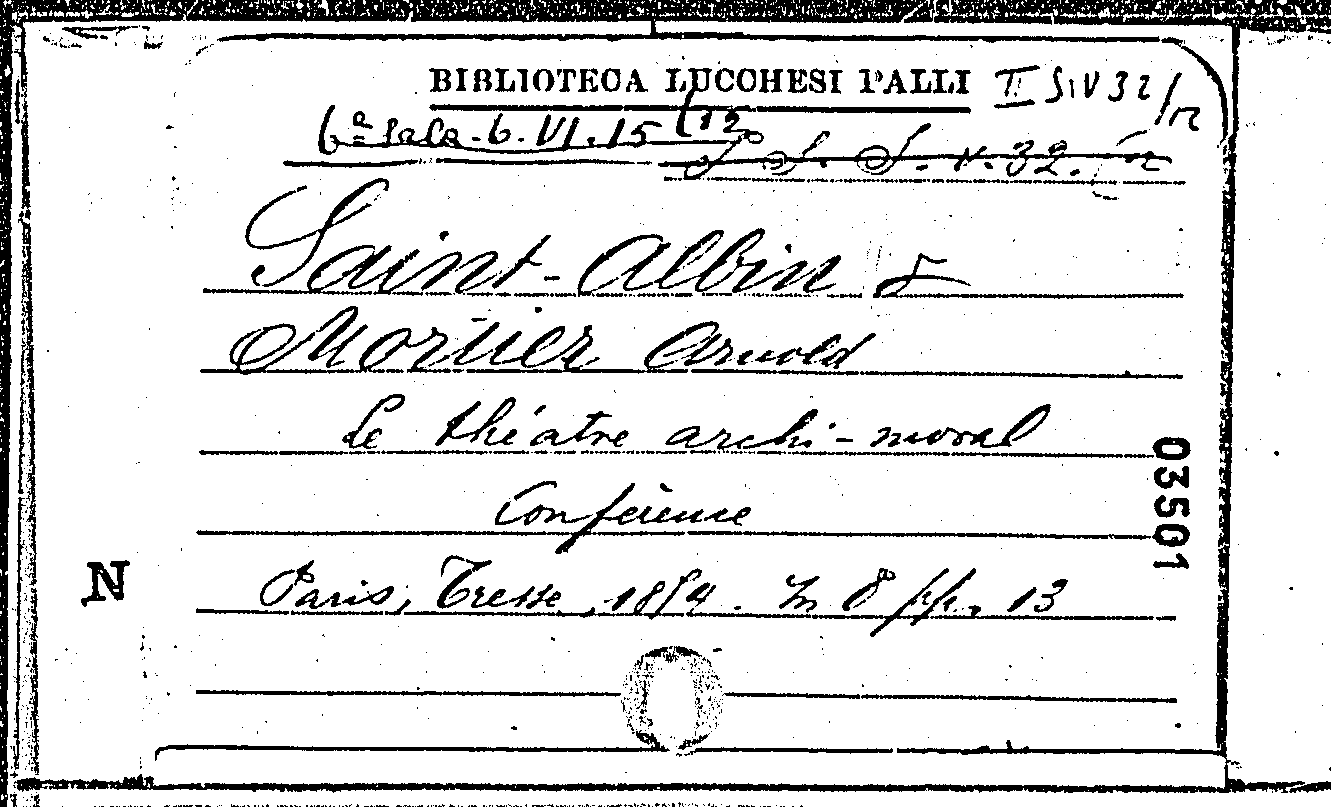 BIBLIOTECA LUCCHESI PALLI II S.IV 32/12
6ª Sala. 6. VI. 15 (12
S. N. 32.
Saint-Albin &
Mortier Arnold
Le théatre archi-moral
Conférence
Paris, Tresse, 18 . In 8° pp. 13
03501
N